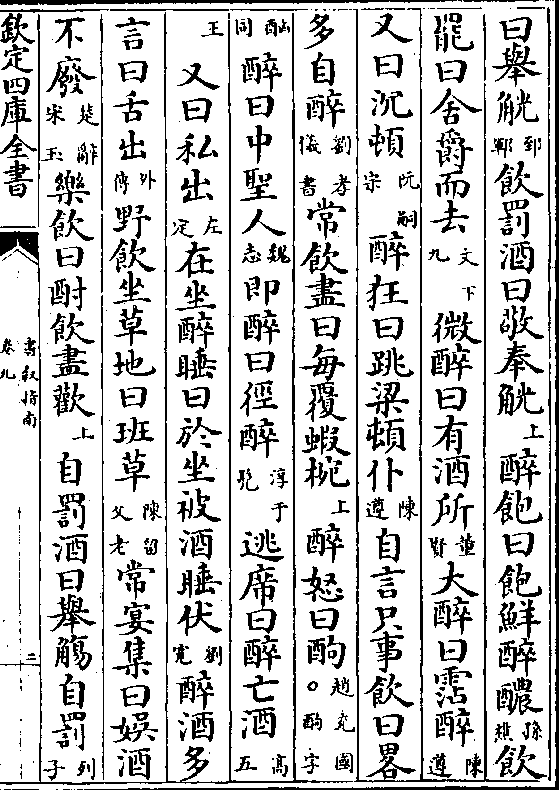 曰舉觥郅飲罰酒曰敬奉觥上醉飽曰飽鮮醉醲孫樵飲
罷曰舍爵而去文下九微醉曰有酒所董賢大醉曰霑醉陳遵
又曰沉頓阮嗣宗醉狂曰跳梁頓仆陳遵自言只事飲曰畧
多自醉劉孝儀書常飲盡曰每覆蝦椀上醉怒曰䣱趙充國○䣱字
酗同醉曰中聖人魏志即醉曰徑醉淳于髡逃席曰醉亡酒高五
王又曰私出左定在坐醉睡曰於坐被酒睡伏劉寬醉酒多
言曰舌出外傳野飲坐草地曰班草陳留父老常宴集曰娛酒
不廢楚辭宋玉樂飲曰酎飲盡歡上自罰酒曰舉觴自罰列子
欽定四庫全書
書叙指南
卷九
二